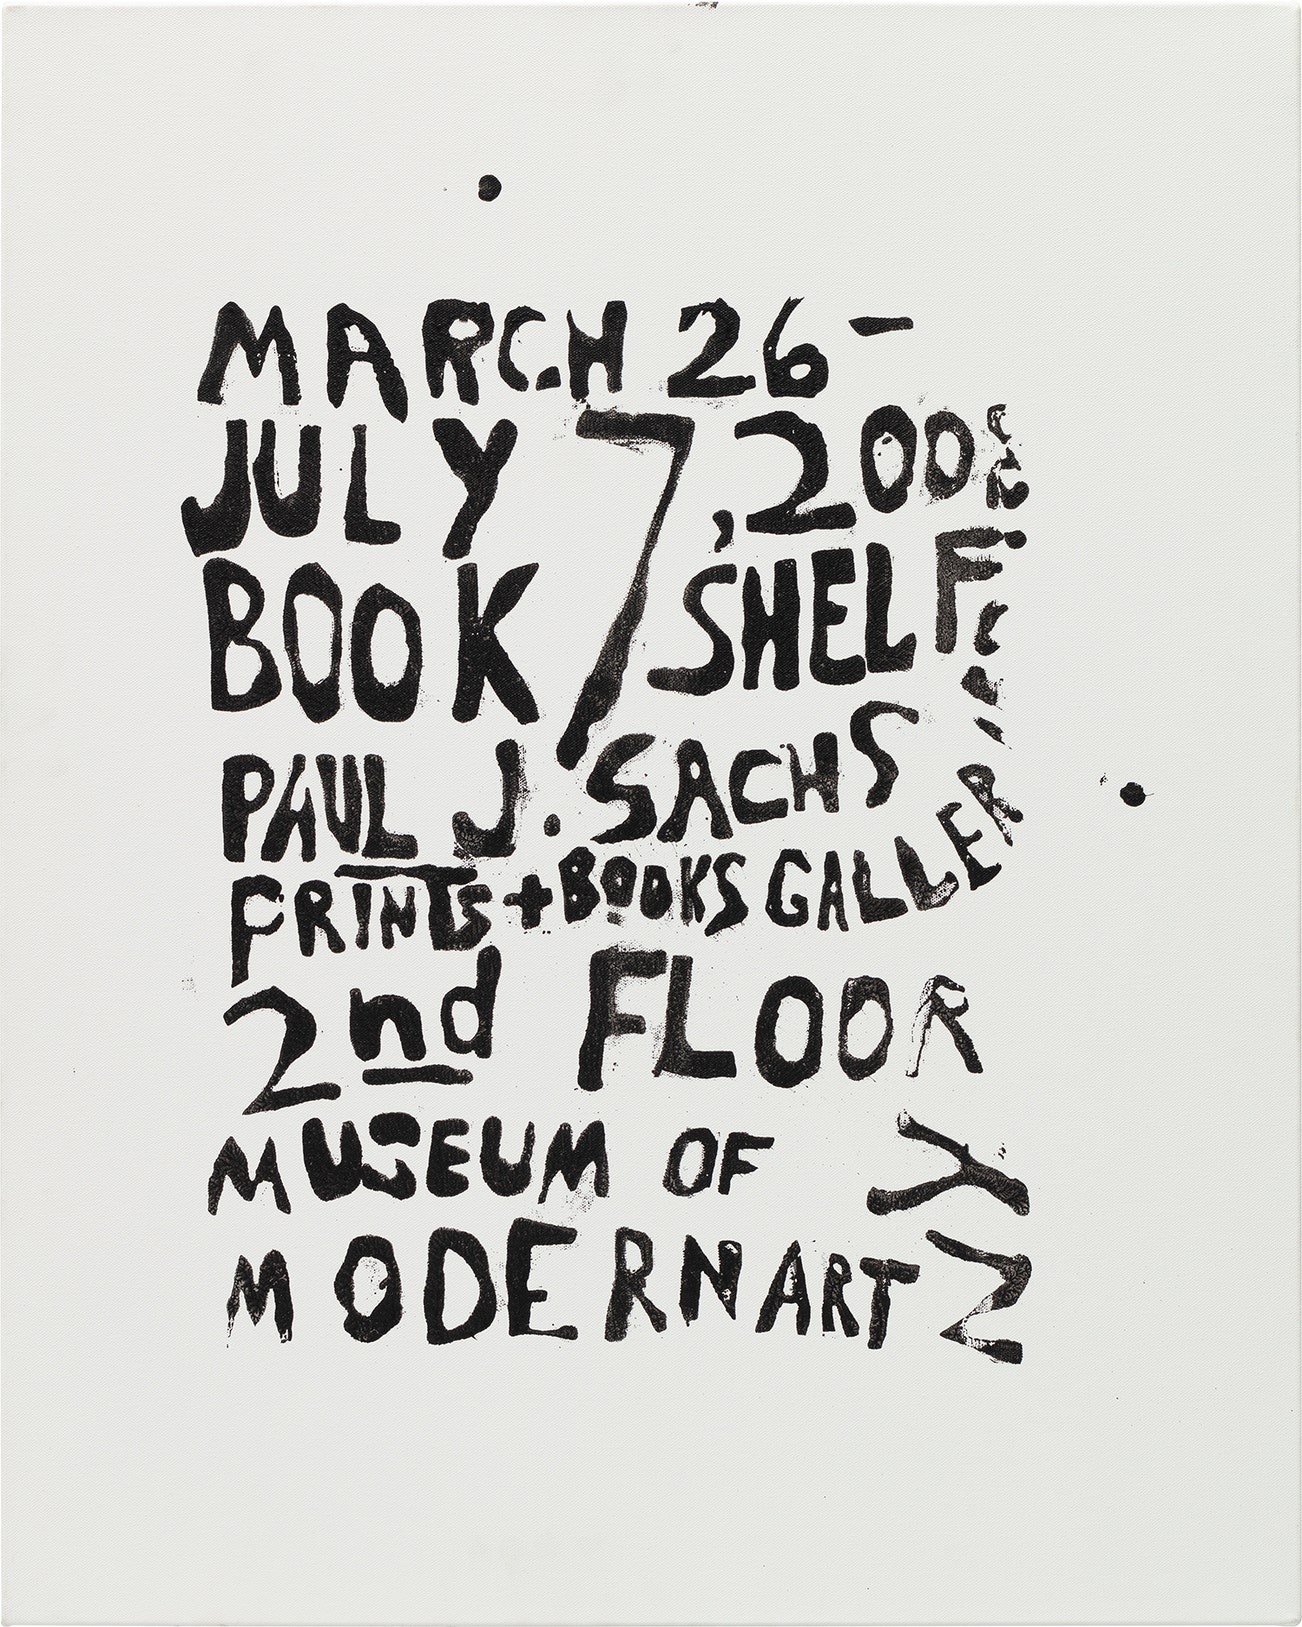 MARCH 26 -
JULY 7, 2008
BOOK SHELF
PAUL J. SACHS
PRINTS + BOOKS GALLERY
2nd FLOOR
MUSEUM OF
MODERN ART
NY